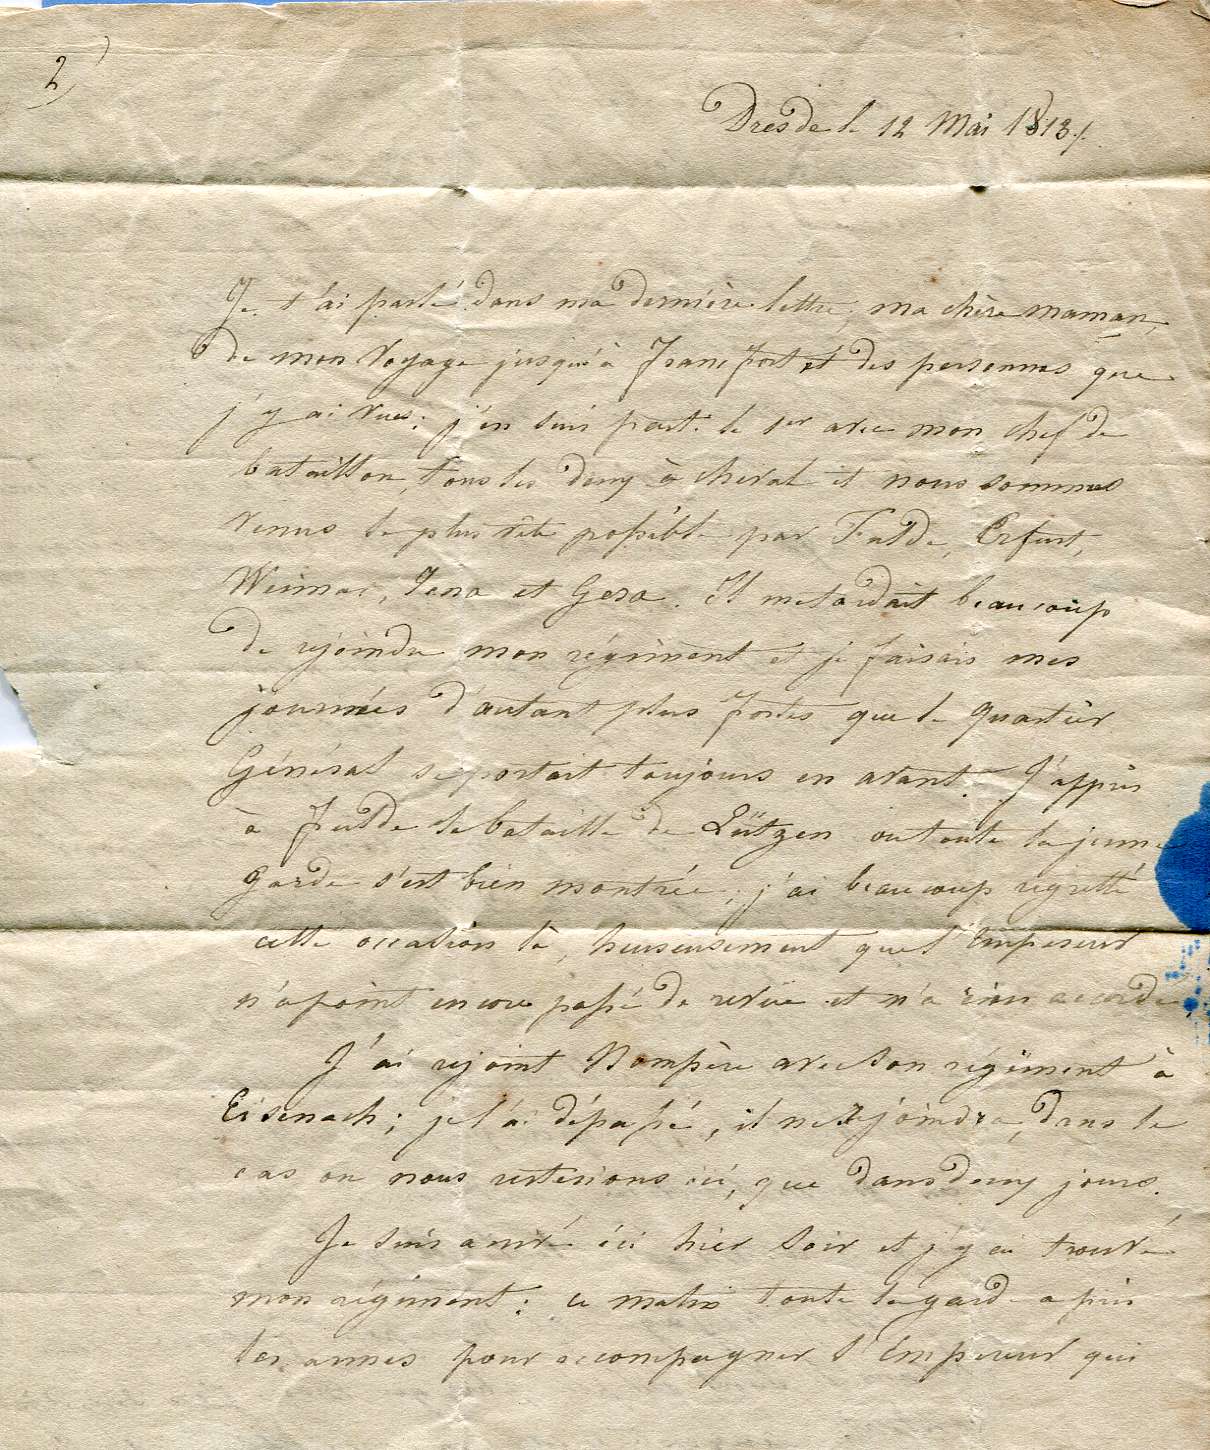 2)
Dresde le 12 Mai 1813.
Je t'ai parlé dans ma dernière lettre, ma chère maman,
de mon voyage jusqu'à Francfort et des personnes que
j'y ai vues; j'en suis parti le 1er avec mon chef de
bataillon, tous les deux à cheval et nous sommes
venus le plus vîte possible par Fulde, Erfurt,
Weimar, Jena et Gera. Il me tardait beaucoup
de rejoindre mon régiment et je faisais mes
journées d'autant plus fortes que le Quartier
Général se portait toujours en avant. J'appris
à Fulde la bataille de Lützen ou toute la jeune
garde s'est bien montrée; j'ai beaucoup regretté
cette occasion là, heureusement que l'Empereur
n'a point encore passé de revüe et n'a rien accordé.
J'ai rejoint Nompère avec son régiment à
Eisenach; je l'ai dépassé, il ne rejoindra, dans le
cas ou nous resterions ici, que dans deux jours.
Je suis arrivé ici hier soir et j'y ai trouvé
mon régiment: ce matin toute la garde a pris
les armes pour accompagner l'Empereur qui